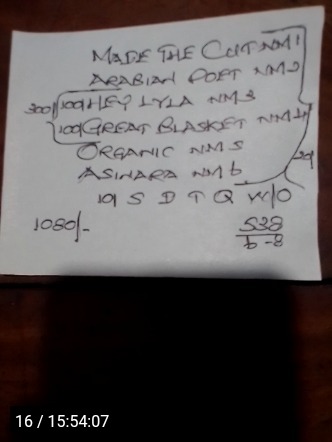 MADE THE CUT NM1
ARABIAN POET NM2
300/ 100/ HEY LYLA NM3
100/ GREAT BLASKET NM4
ORGANIC NM5
ASINARA NM6
10/ S D T Q W/O
1080/-
538
6-8
16 / 15:54:07